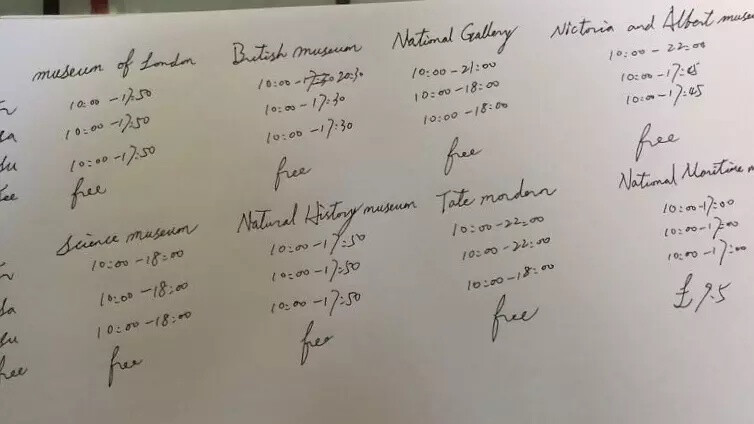 museum of London British museum National Gallery Nictoria and Albert muse
10:00-17:50 10:00-17:30 20:30 10:00-21:00 10:00-22:00
sa 10:00-17:50 10:00-17:30 10:00-18:00 10:00-17:45
su 10:00-17:50 10:00-17:30 10:00-18:00 10:00-17:45
ee free free free free
Science museum Natural History museum Tate mordern National Maritime m
10:00-18:00 10:00-17:50 10:00-22:00 10:00-17:00
da 10:00-18:00 10:00-17:50 10:00-22:00 10:00-17:00
su 10:00-18:00 10:00-17:50 10:00-18:00 10:00-17:00
free free free free £9.5